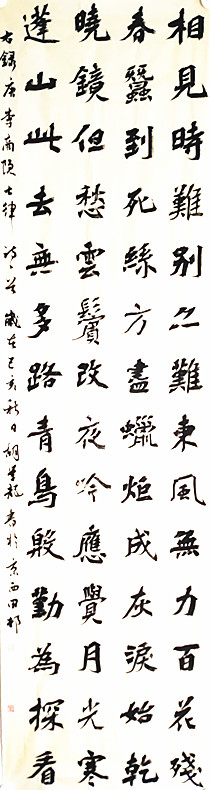 相見時難别亦難東風無力百花殘
春蠶到死絲方盡蠟炬成灰淚始乾
曉鏡但愁雲鬢改夜吟應覺月光寒
蓬山此去無多路青鳥殷勤為探看
右錄唐李商隱七律詩一首歲在己亥秋日胡書於京西田村